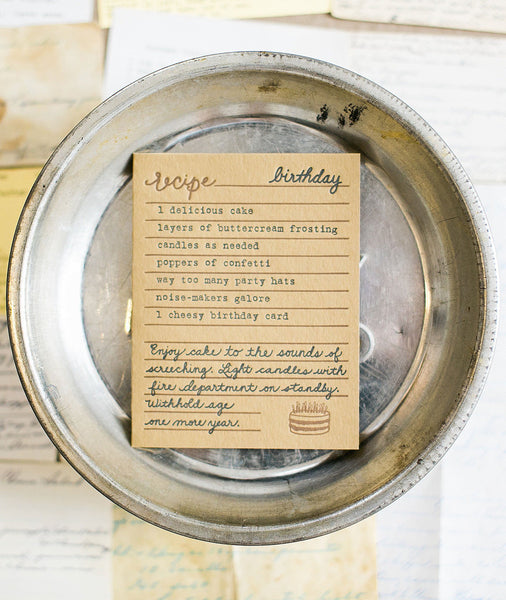 recipe birthday
1 delicious cake
layers of buttercream frosting
candles as needed
poppers of confetti
way too many party hats
noise-makers galore
1 cheesy birthday card
Enjoy cake to the sounds of
screeching. Light candles with
fire department on standby.
Withhold age
one more year.